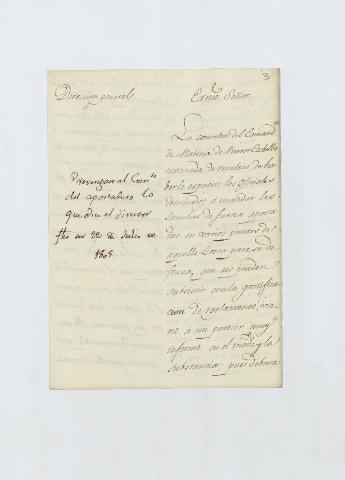 3
Direccion general
Exmo. Señor.
Prevengase al Comte.
del apostadero lo
que dice el director
fho en 22 de Julio de
1805
La consulta del Comandte.
de Marina de Puerto Cabello
de resultas de ha-
berle expuesto los oficiales
destinados a mandar las
lanchas de fuerza aposta-
das en varios puntos de
aquella Costa para su de-
fensa, que no pueden
subsistir con la gratifica-
cion de reglamento, vie-
ne a mi parecer muy
informe en el modo y la
substancia; pues debiera